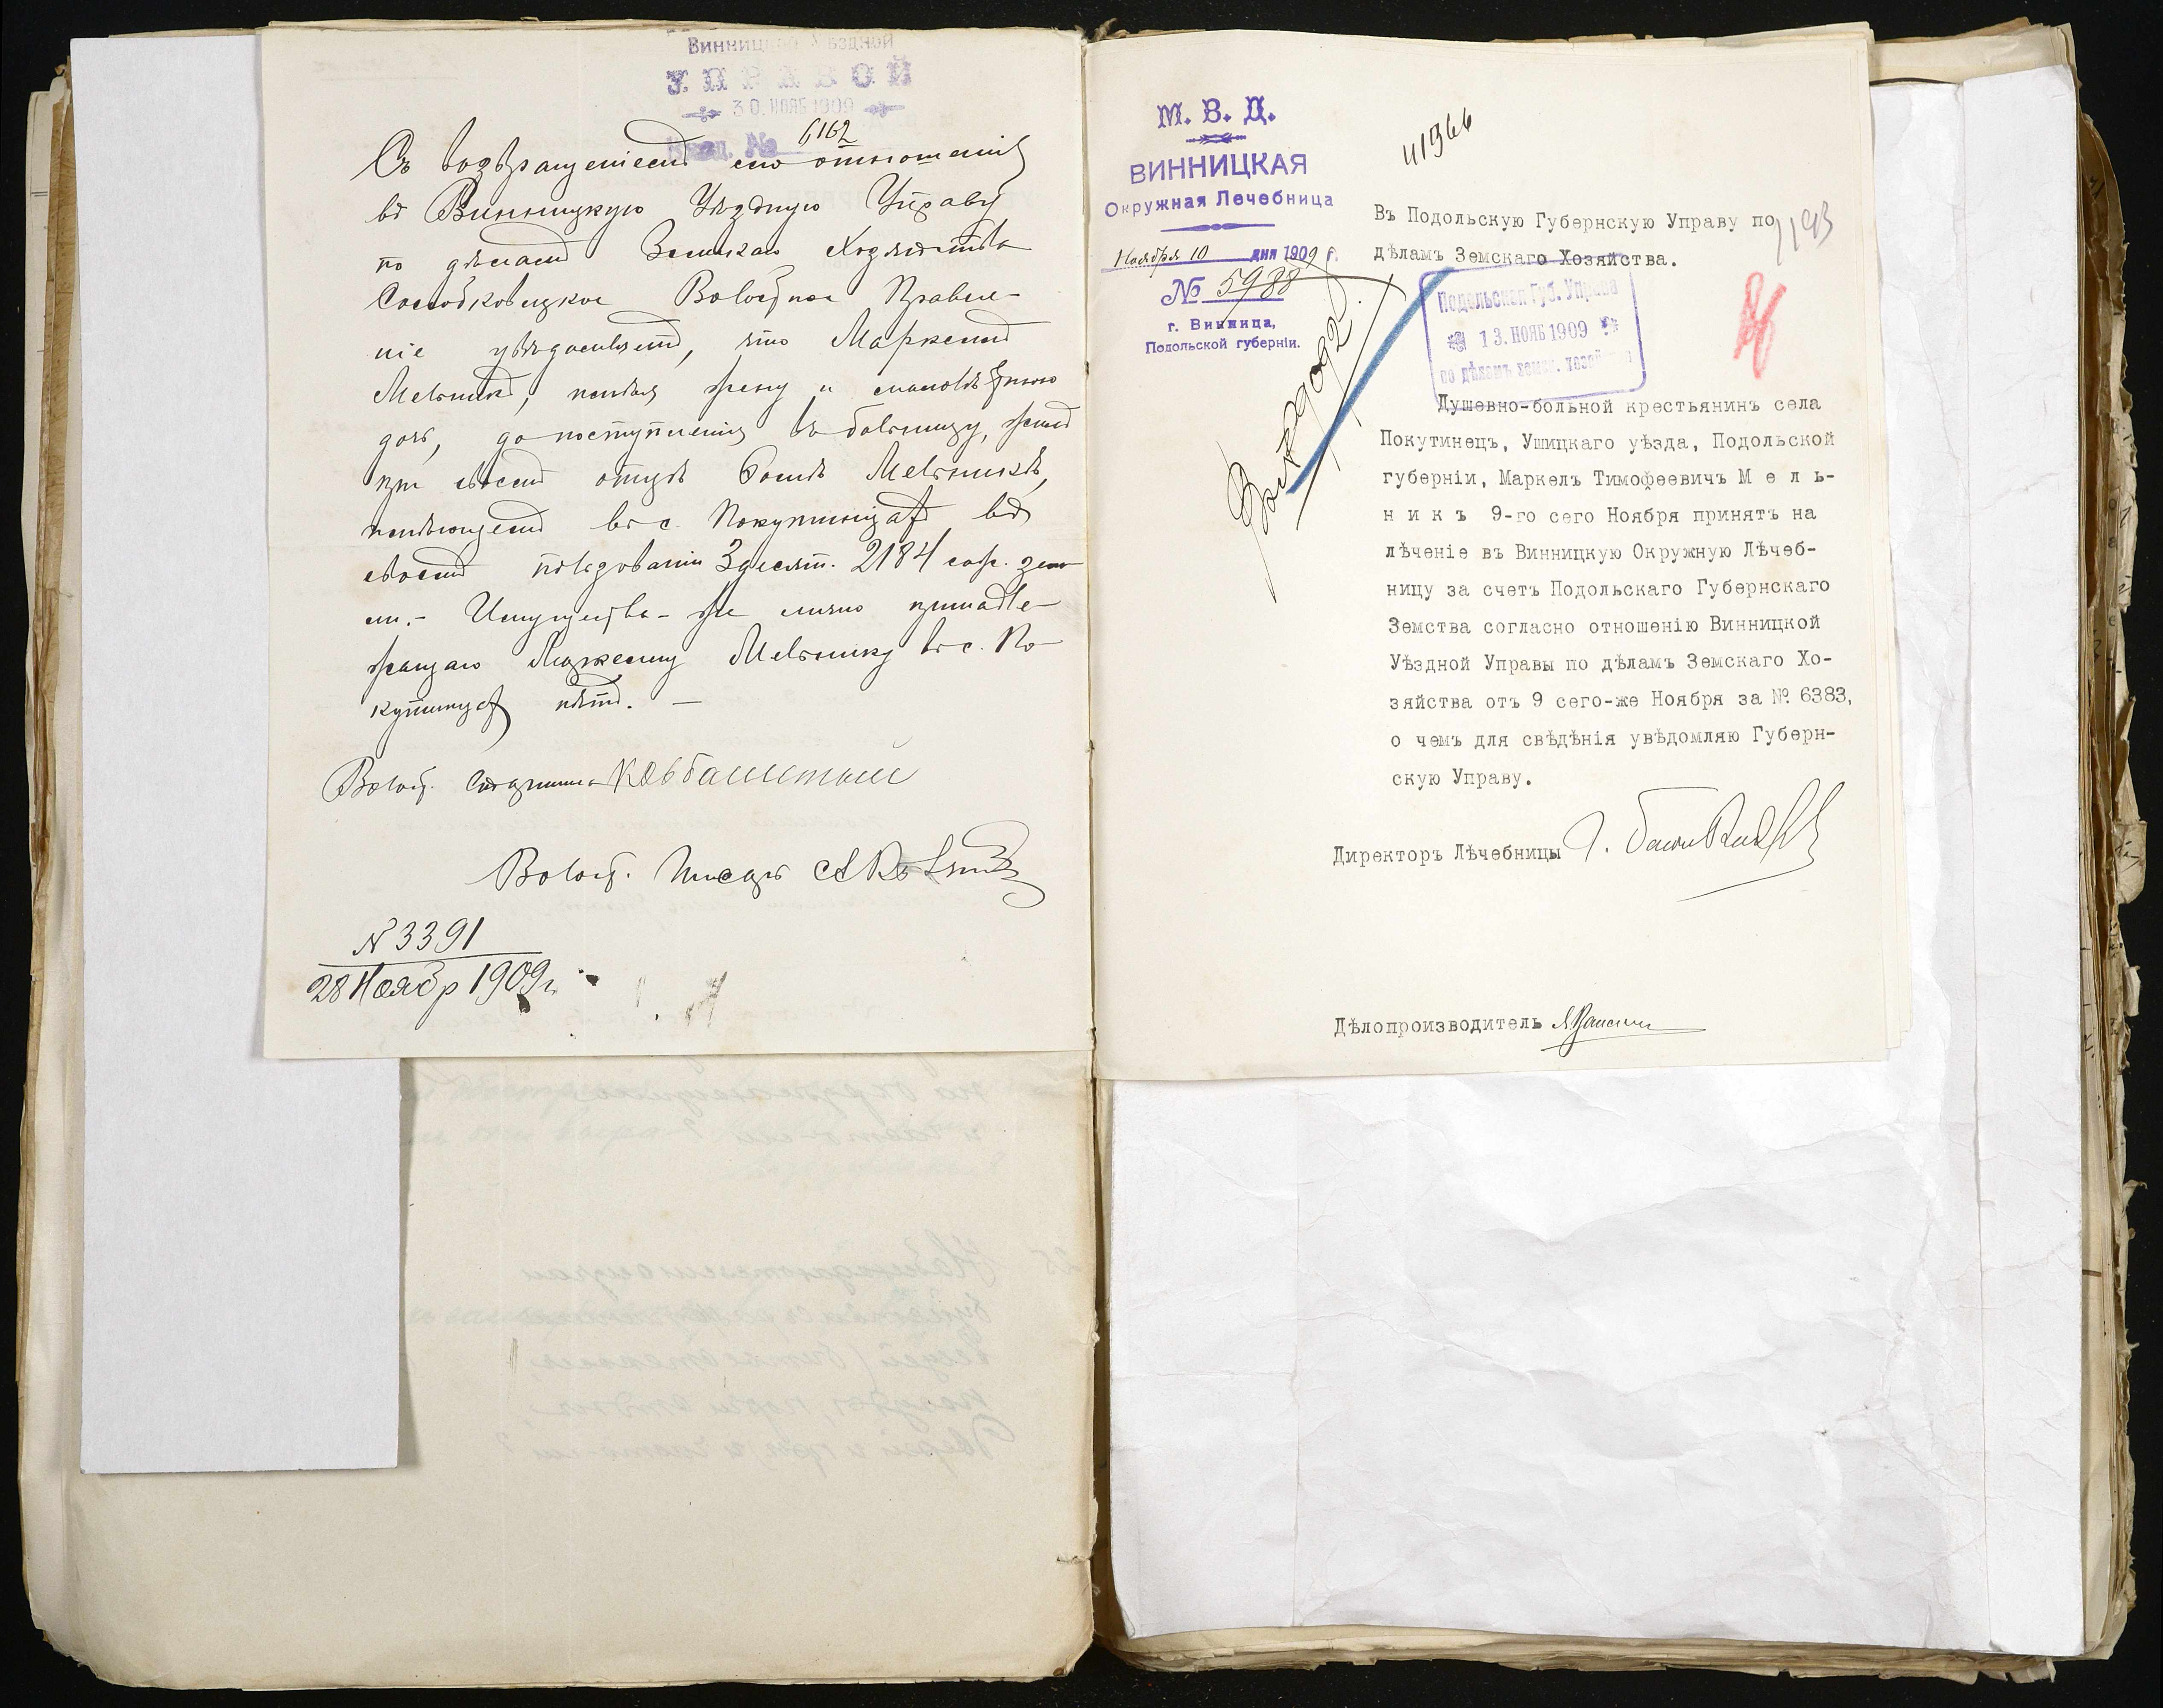 Винницкой Уѣздной
УПРАВОЙ
30. НОЯБ 1909
Вход. № 6162
Съ возвращеніемъ сего отношенія
въ Винницкую Уѣздную Управу
по дѣламъ Земскаго Хозяйства
Волостное Правле-
ніе увѣдомляетъ, что Маркелъ
Мельникъ, имѣя жену и малолѣтнюю
дочь, до поступленія въ больницу, жилъ
при своемъ отцѣ Мельникѣ,
имѣющемъ въ с. Покутинцахъ въ
своемъ пользованіи 3 десят. 2184 саж. зем
ли. – Имущества-же лично принадле-
жащаго Маркелу Мельнику въ с. По-
кутинцахъ нѣтъ. –
Волост. Старшина Ковбасистый
Волост. Писарь
N 3391
28 Ноябр 1909 г.
М. В. Д.
ВИННИЦКАЯ
Окружная Лечебница
Ноября 10 дня 1909 г.
№ 5988
г. Винница,
Подольской губерніи.
Въ Подольскую Губернскую Управу по
дѣламъ Земскаго Хозяйства.
Подольская Губ. Управа
13. НОЯБ 1909
по дѣламъ земск. хозяйства
Душевно-больной крестьянинъ села
Покутинецъ, Ушицкаго уѣзда, Подольской
губерніи, Маркелъ Тимофеевичъ М е л ь-
н и к ъ 9-го сего Ноября принятъ на
лѣченіе въ Винницкую Окружную Лѣчеб-
ницу за счетъ Подольскаго Губернскаго
Земства согласно отношенію Винницкой
Уѣздной Управы по дѣламъ Земскаго Хо-
зяйства отъ 9 сего-же Ноября за № 6383,
о чемъ для свѣдѣнія увѣдомляю Губерн-
скую Управу.
Директоръ Лѣчебницы
Дѣлопроизводитель